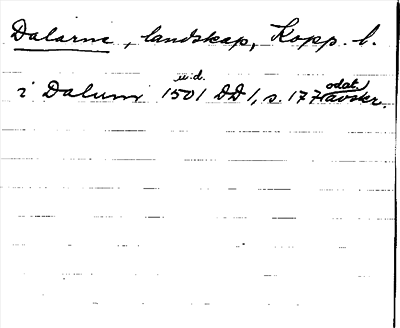 Dalarne, landskap, Kopp. l.
i Dalum 1501 u.d. DD 1, s. 177 odat. avskr.